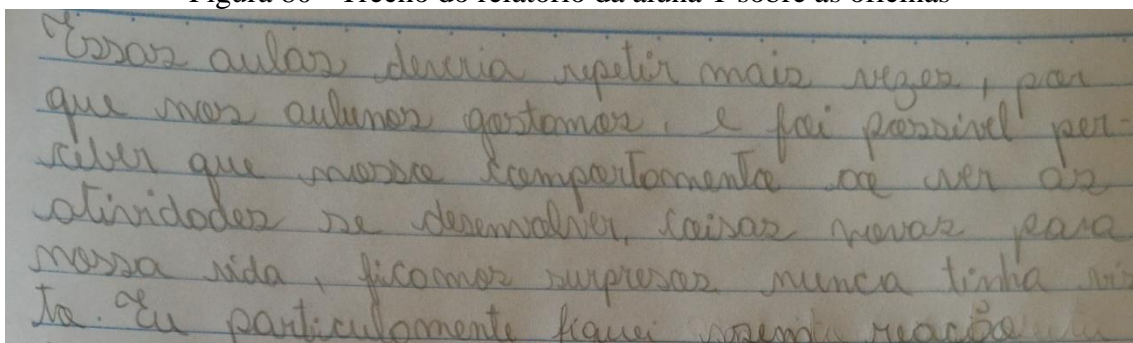 Figura 80 – Trecho do relatório da aluna T sobre as oficinas
Essas aulas deveria repetir mais vezes, por
que nos aulunos gostamos, e foi possivel per-
ceber que nosso comportamento ao ver as
atividades se desenvolver, coisas novas para
nossa vida, ficamos surpresos nunca tinha vis
to. Eu particulamente fiquei sem reação